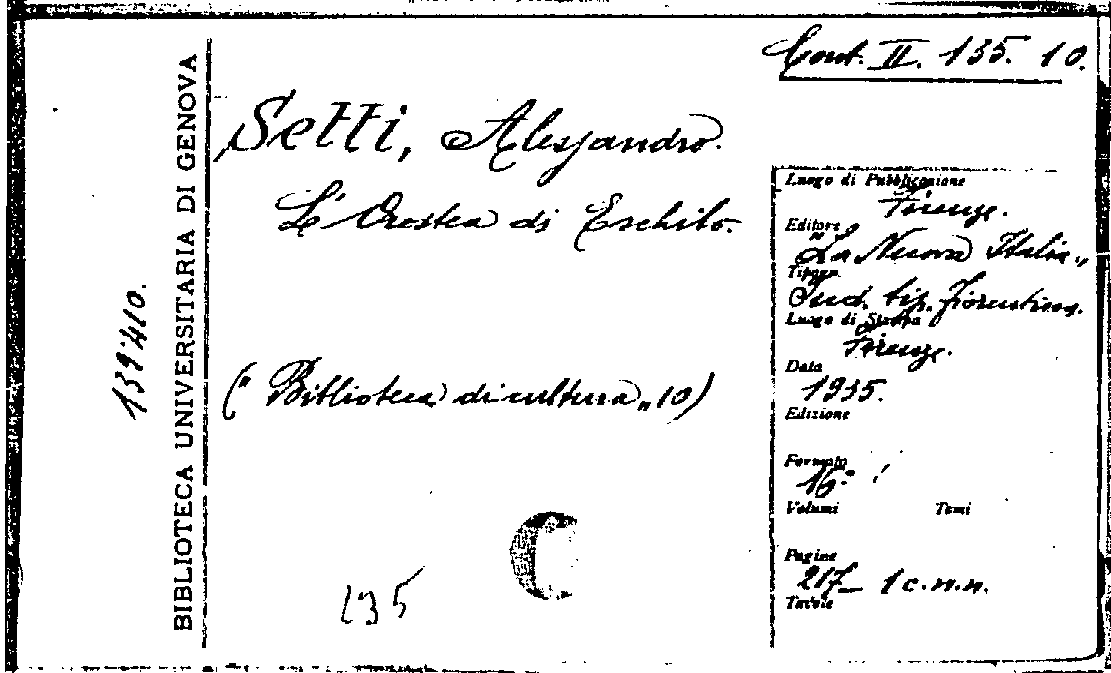 Cont. II. 135. 10.
Setti, Alessandro.
L'Orestea di Eschilo.
("Biblioteca di cultura„ 10)
BIBLIOTECA UNIVERSITARIA DI GENOVA
139410.
Luogo di Pubblicazione
Firenze.
Editore
"La Nuova Italia„
Tipogr.
Ind. tip. fiorentina.
Luogo di Stampa
Firenze.
Data
1935.
Edizione
Formato
16°
Volumi Tomi
Pagine
217_ 1 c.n.n.
Tavole
C
135